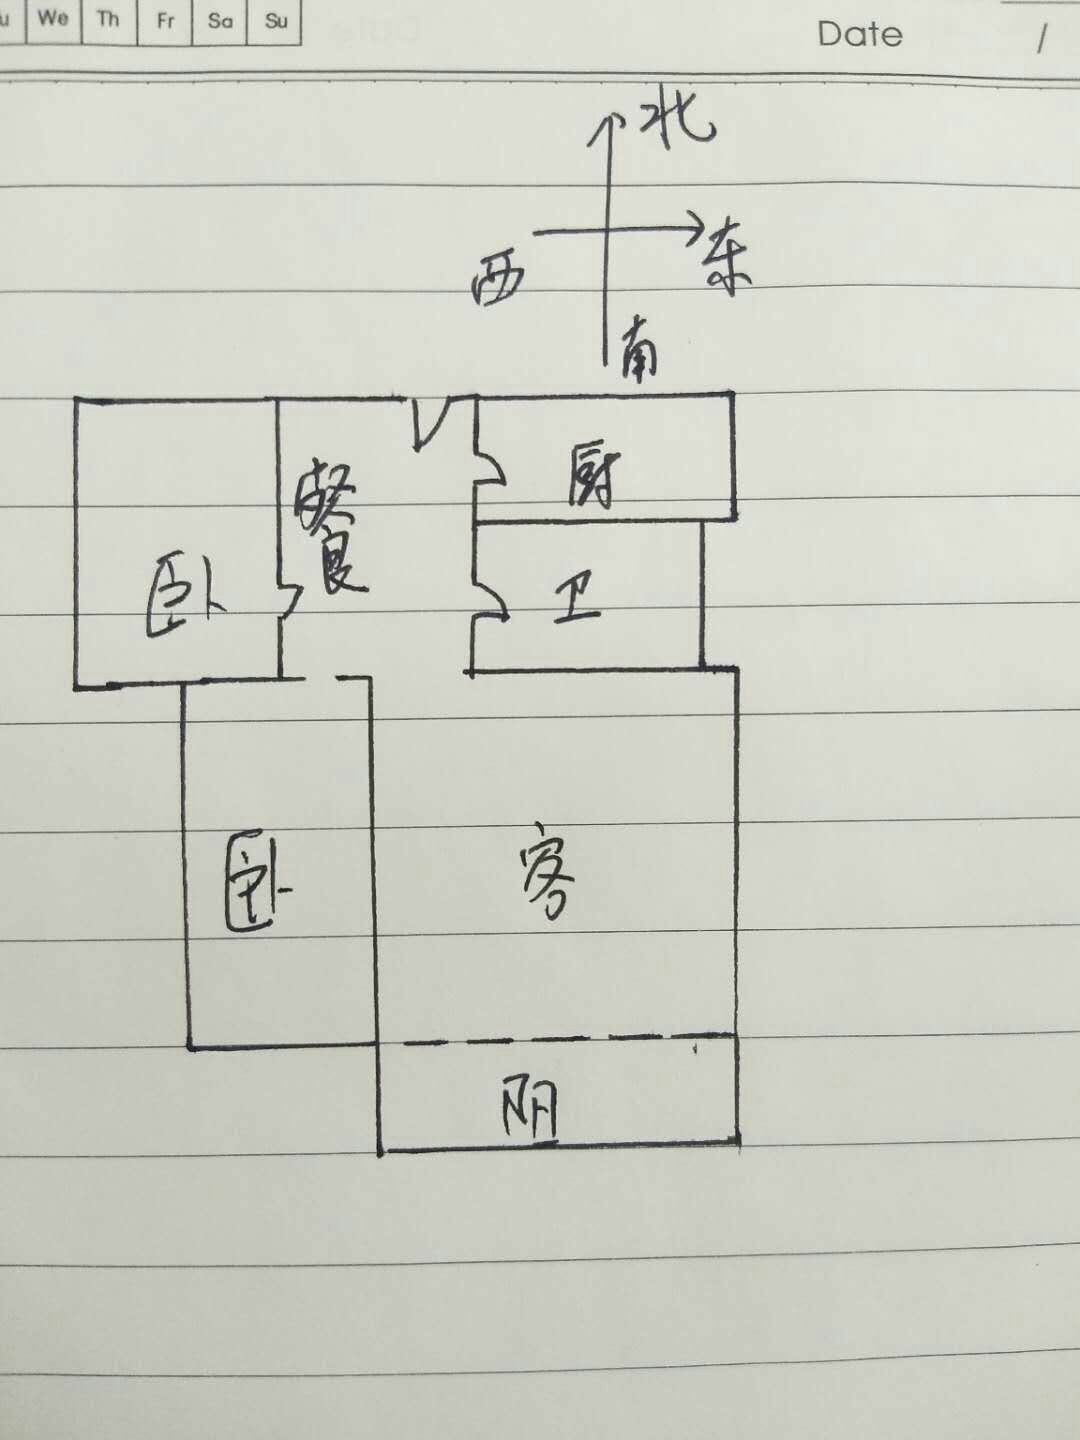 We Th Fr Sa Su
Date /
北
西 东
南
餐 厨
卧 卫
主卧 客
阳